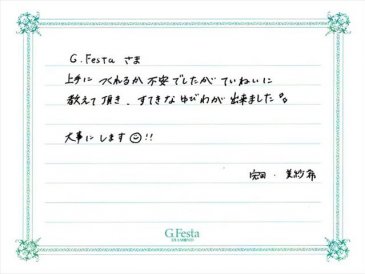 G.Festa さま
上手に つくれるか 不安でしたが ていねいに
教えて頂き、すてきな ゆびわが 出来ました。
大事にします☺!!
美紗希
G.Festa